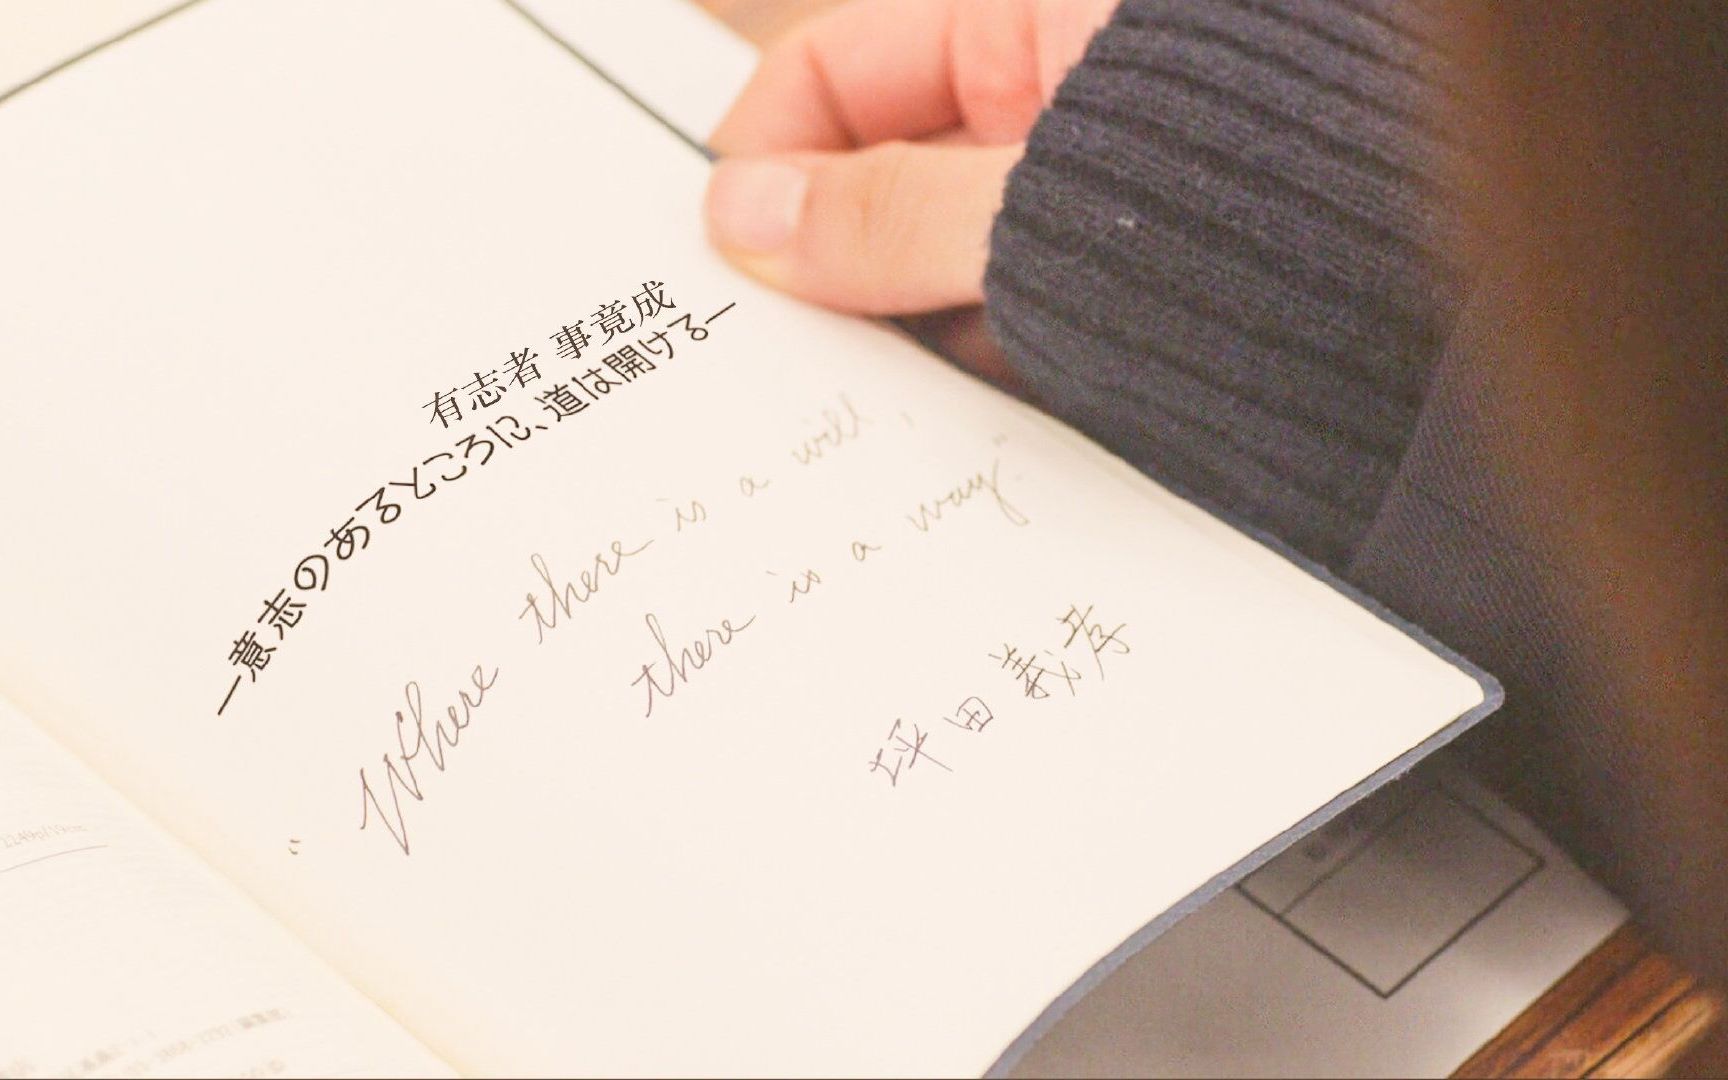 有志者 事竟成
—意志のあるところに、道は開ける—
" Where there is a will,
there is a way".
坪田 義孝
2249p/19cm